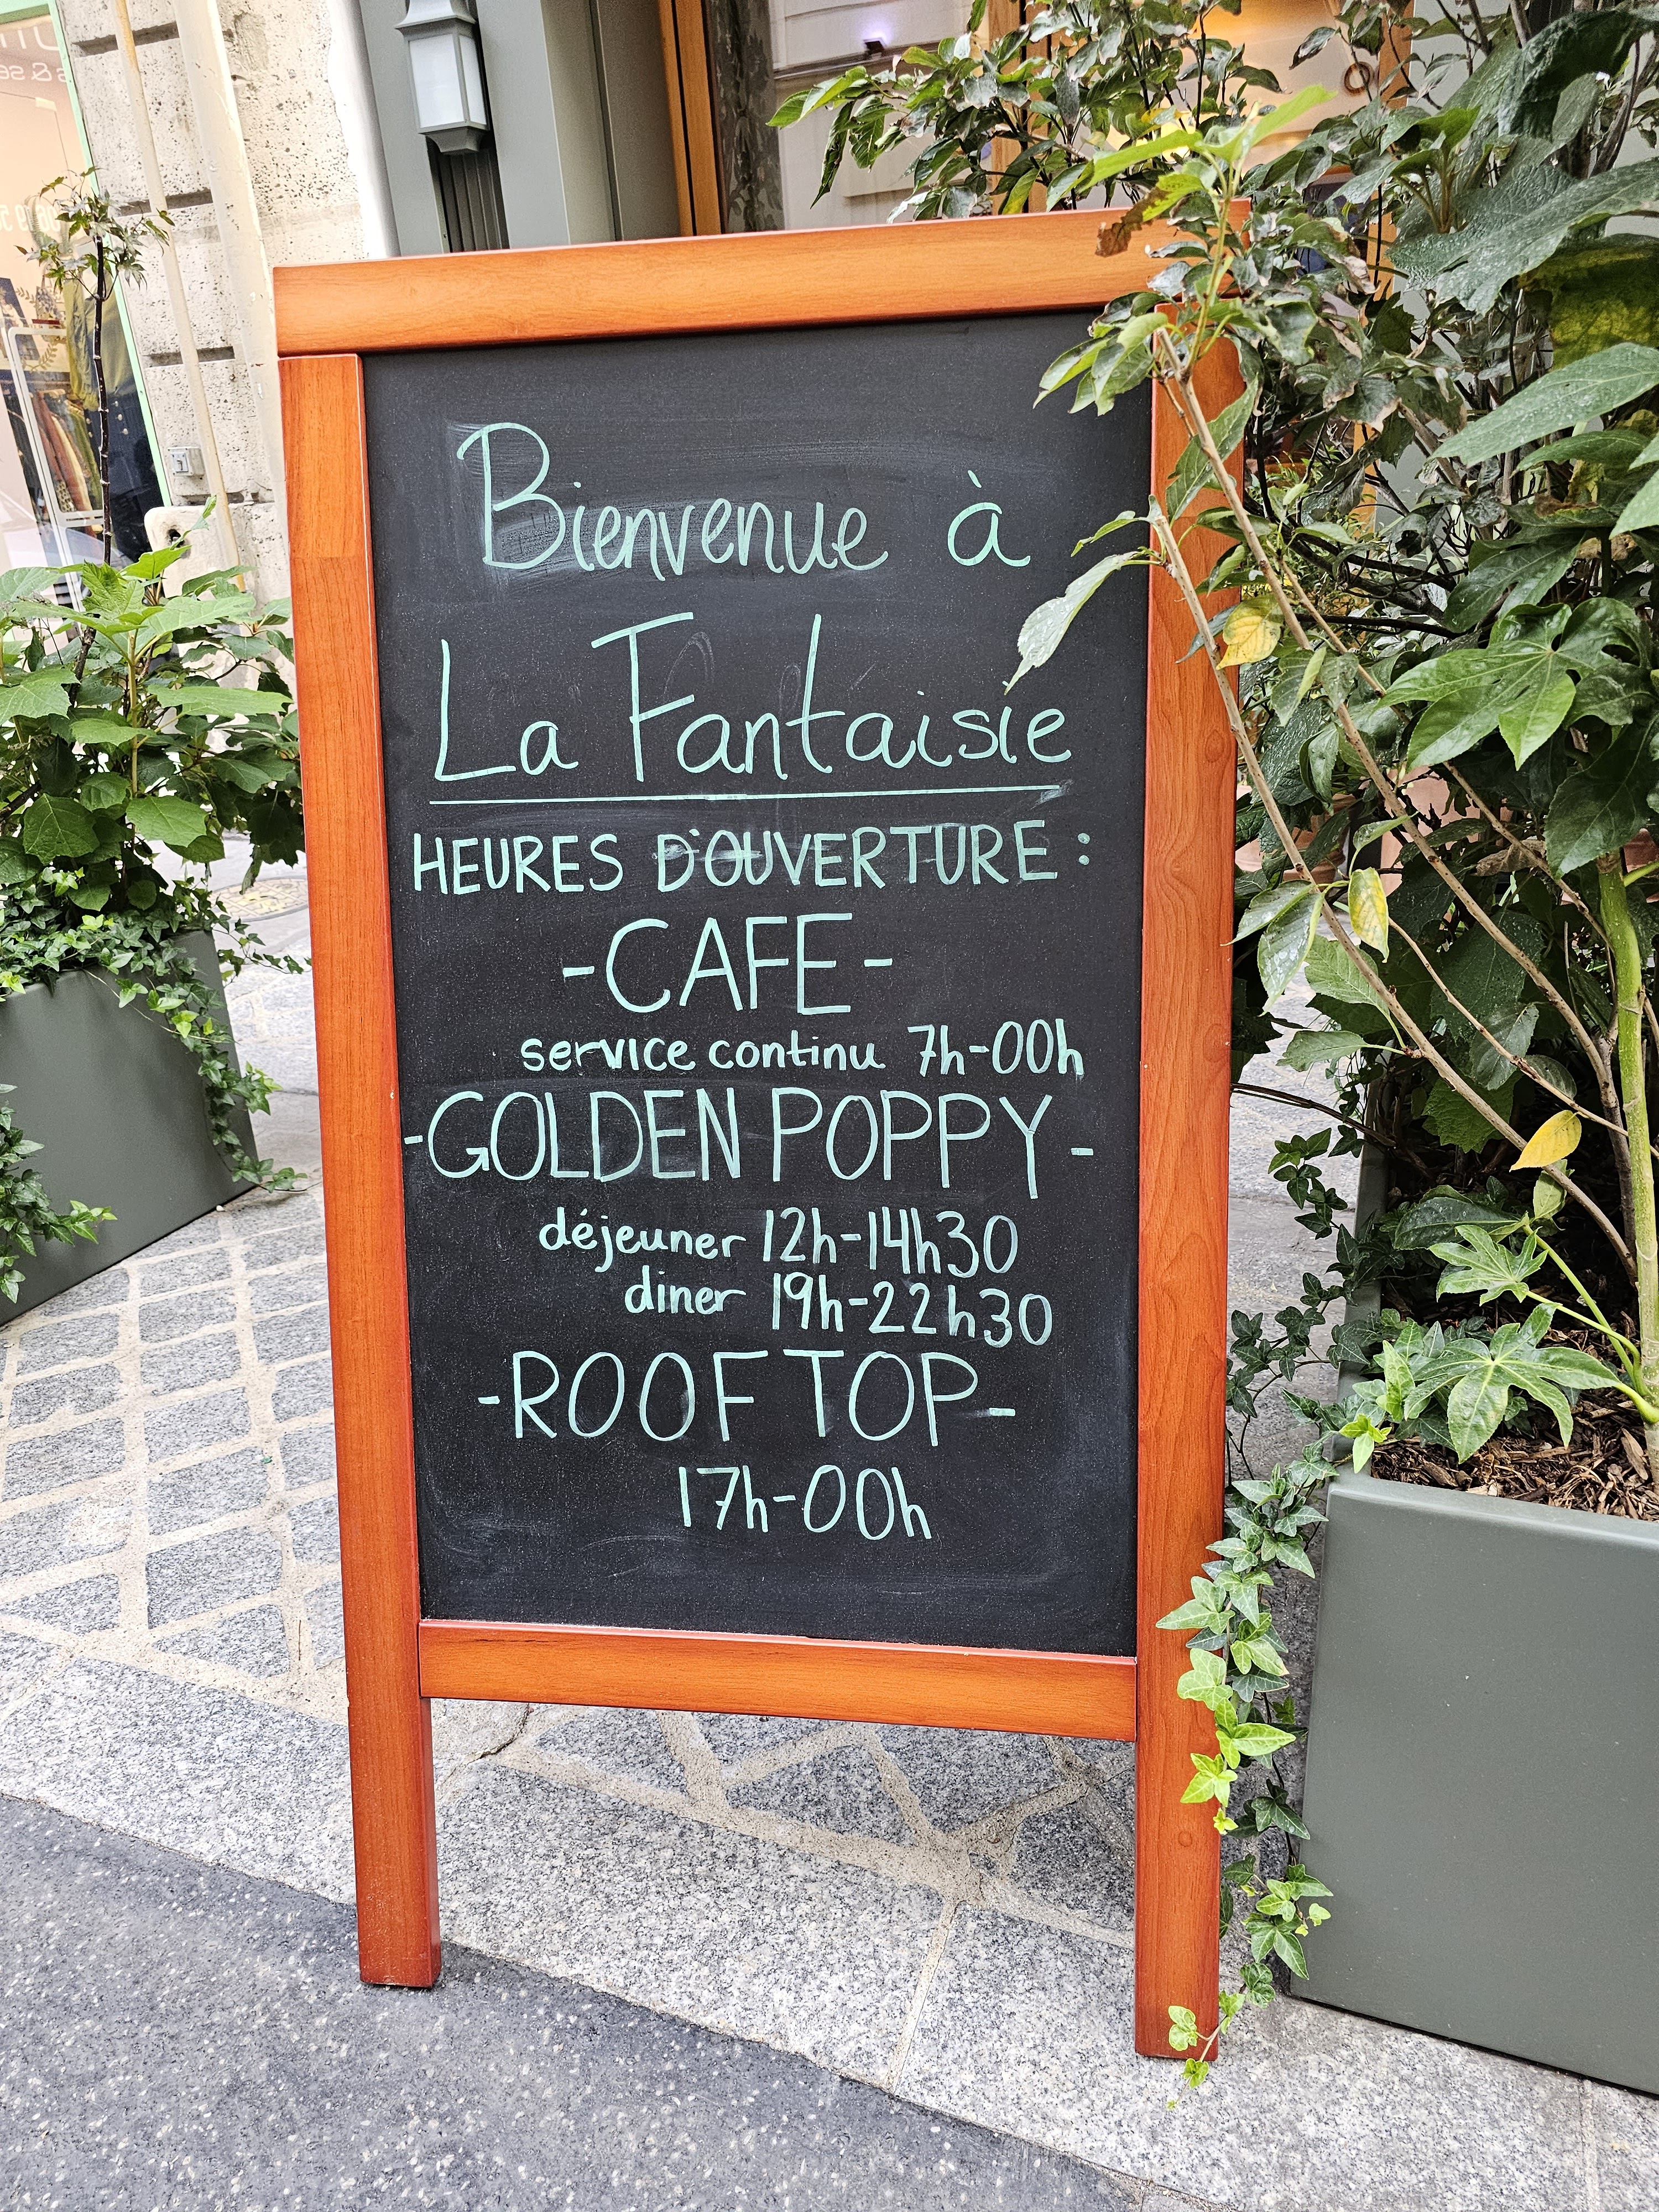 Bienvenue à
La Fantaisie
HEURES D'OUVERTURE :
-CAFE-
service continu 7h-00h
-GOLDEN POPPY-
déjeuner 12h-14h30
diner 19h-22h30
-ROOF TOP-
17h-00h